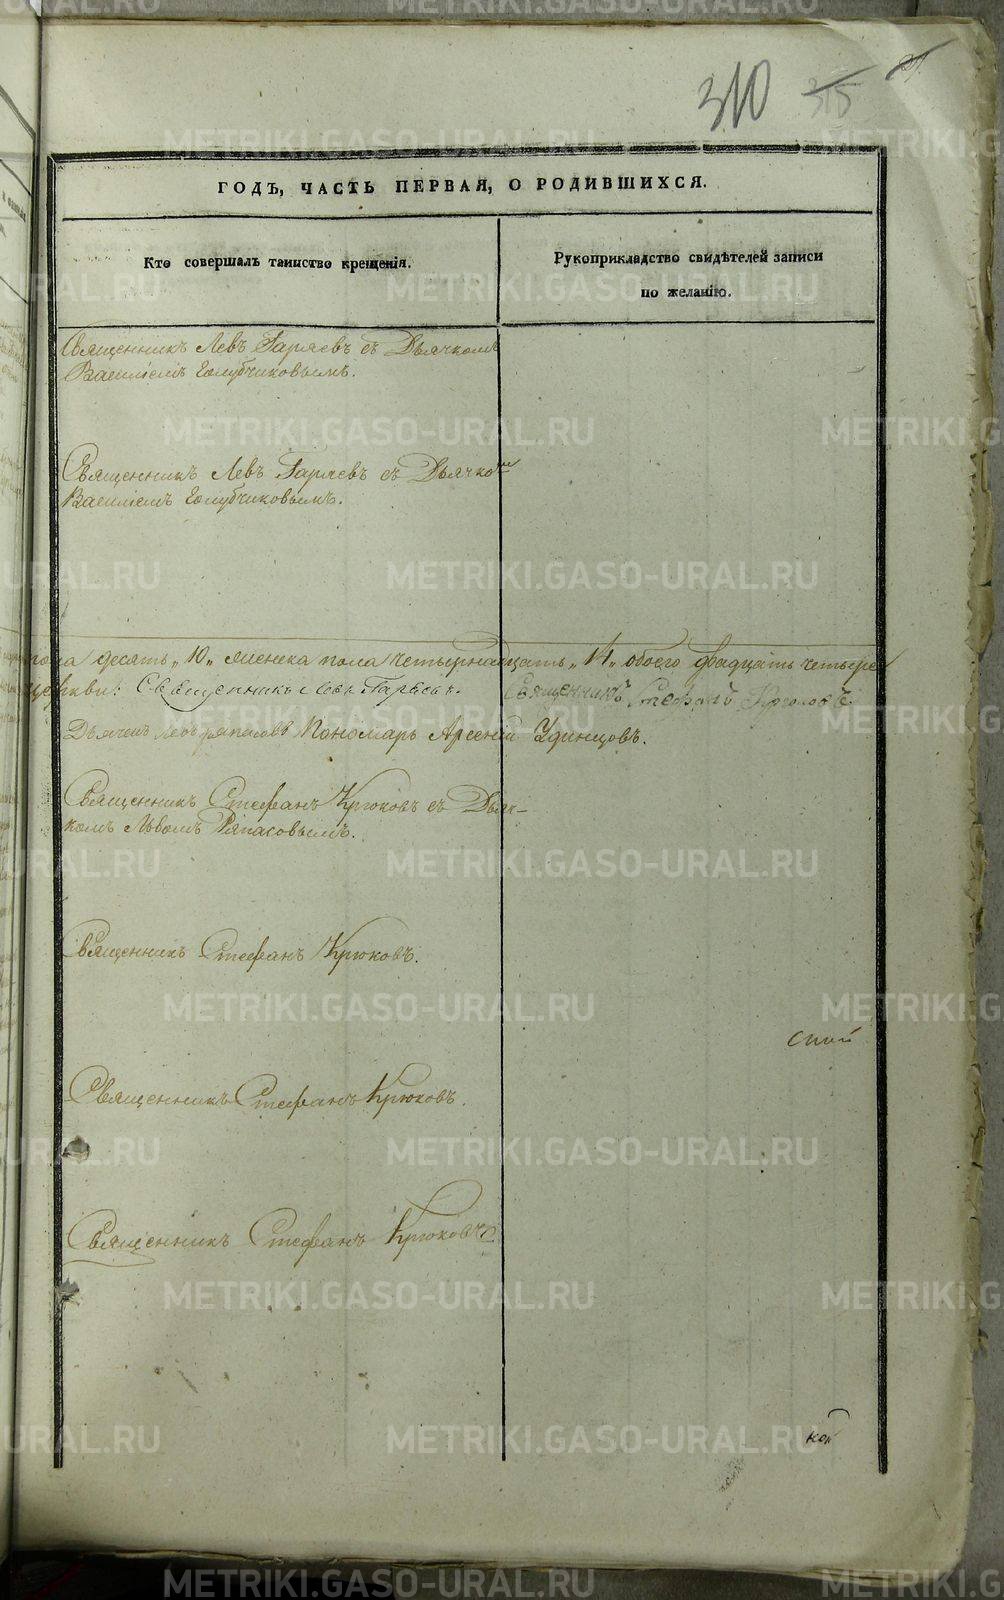 310 315
ГОДЪ, ЧАСТЬ ПЕРВАЯ, О РОДИВШИХСЯ.
Кто совершалъ таинство крещенія.
Рукоприкладство свидѣтелей записи
по желанію.
Священникъ Левъ Гаряевъ съ Дьячкомъ
Василіемъ Голубчиковымъ.
Священникъ Левъ Гаряевъ съ Дьячкомъ
Василіемъ Голубчиковымъ.
пола десять „10„ женска пола четырнадцать „14„ обоего двадцать четыре
церкви: Священникъ Левъ Гаряевъ. Священникъ Стефанъ Крюковъ
Дьячекъ Левъ Ряпасовъ Пономарь Арсеній Удинцовъ.
Священникъ Стефанъ Крюковъ съ Дьяч-
комъ Львомъ Ряпасовымъ.
Священникъ Стефанъ Крюковъ.
Священникъ Стефанъ Крюковъ.
Священникъ Стефанъ Крюковъ
METRIKI.GASO-URAL.RU